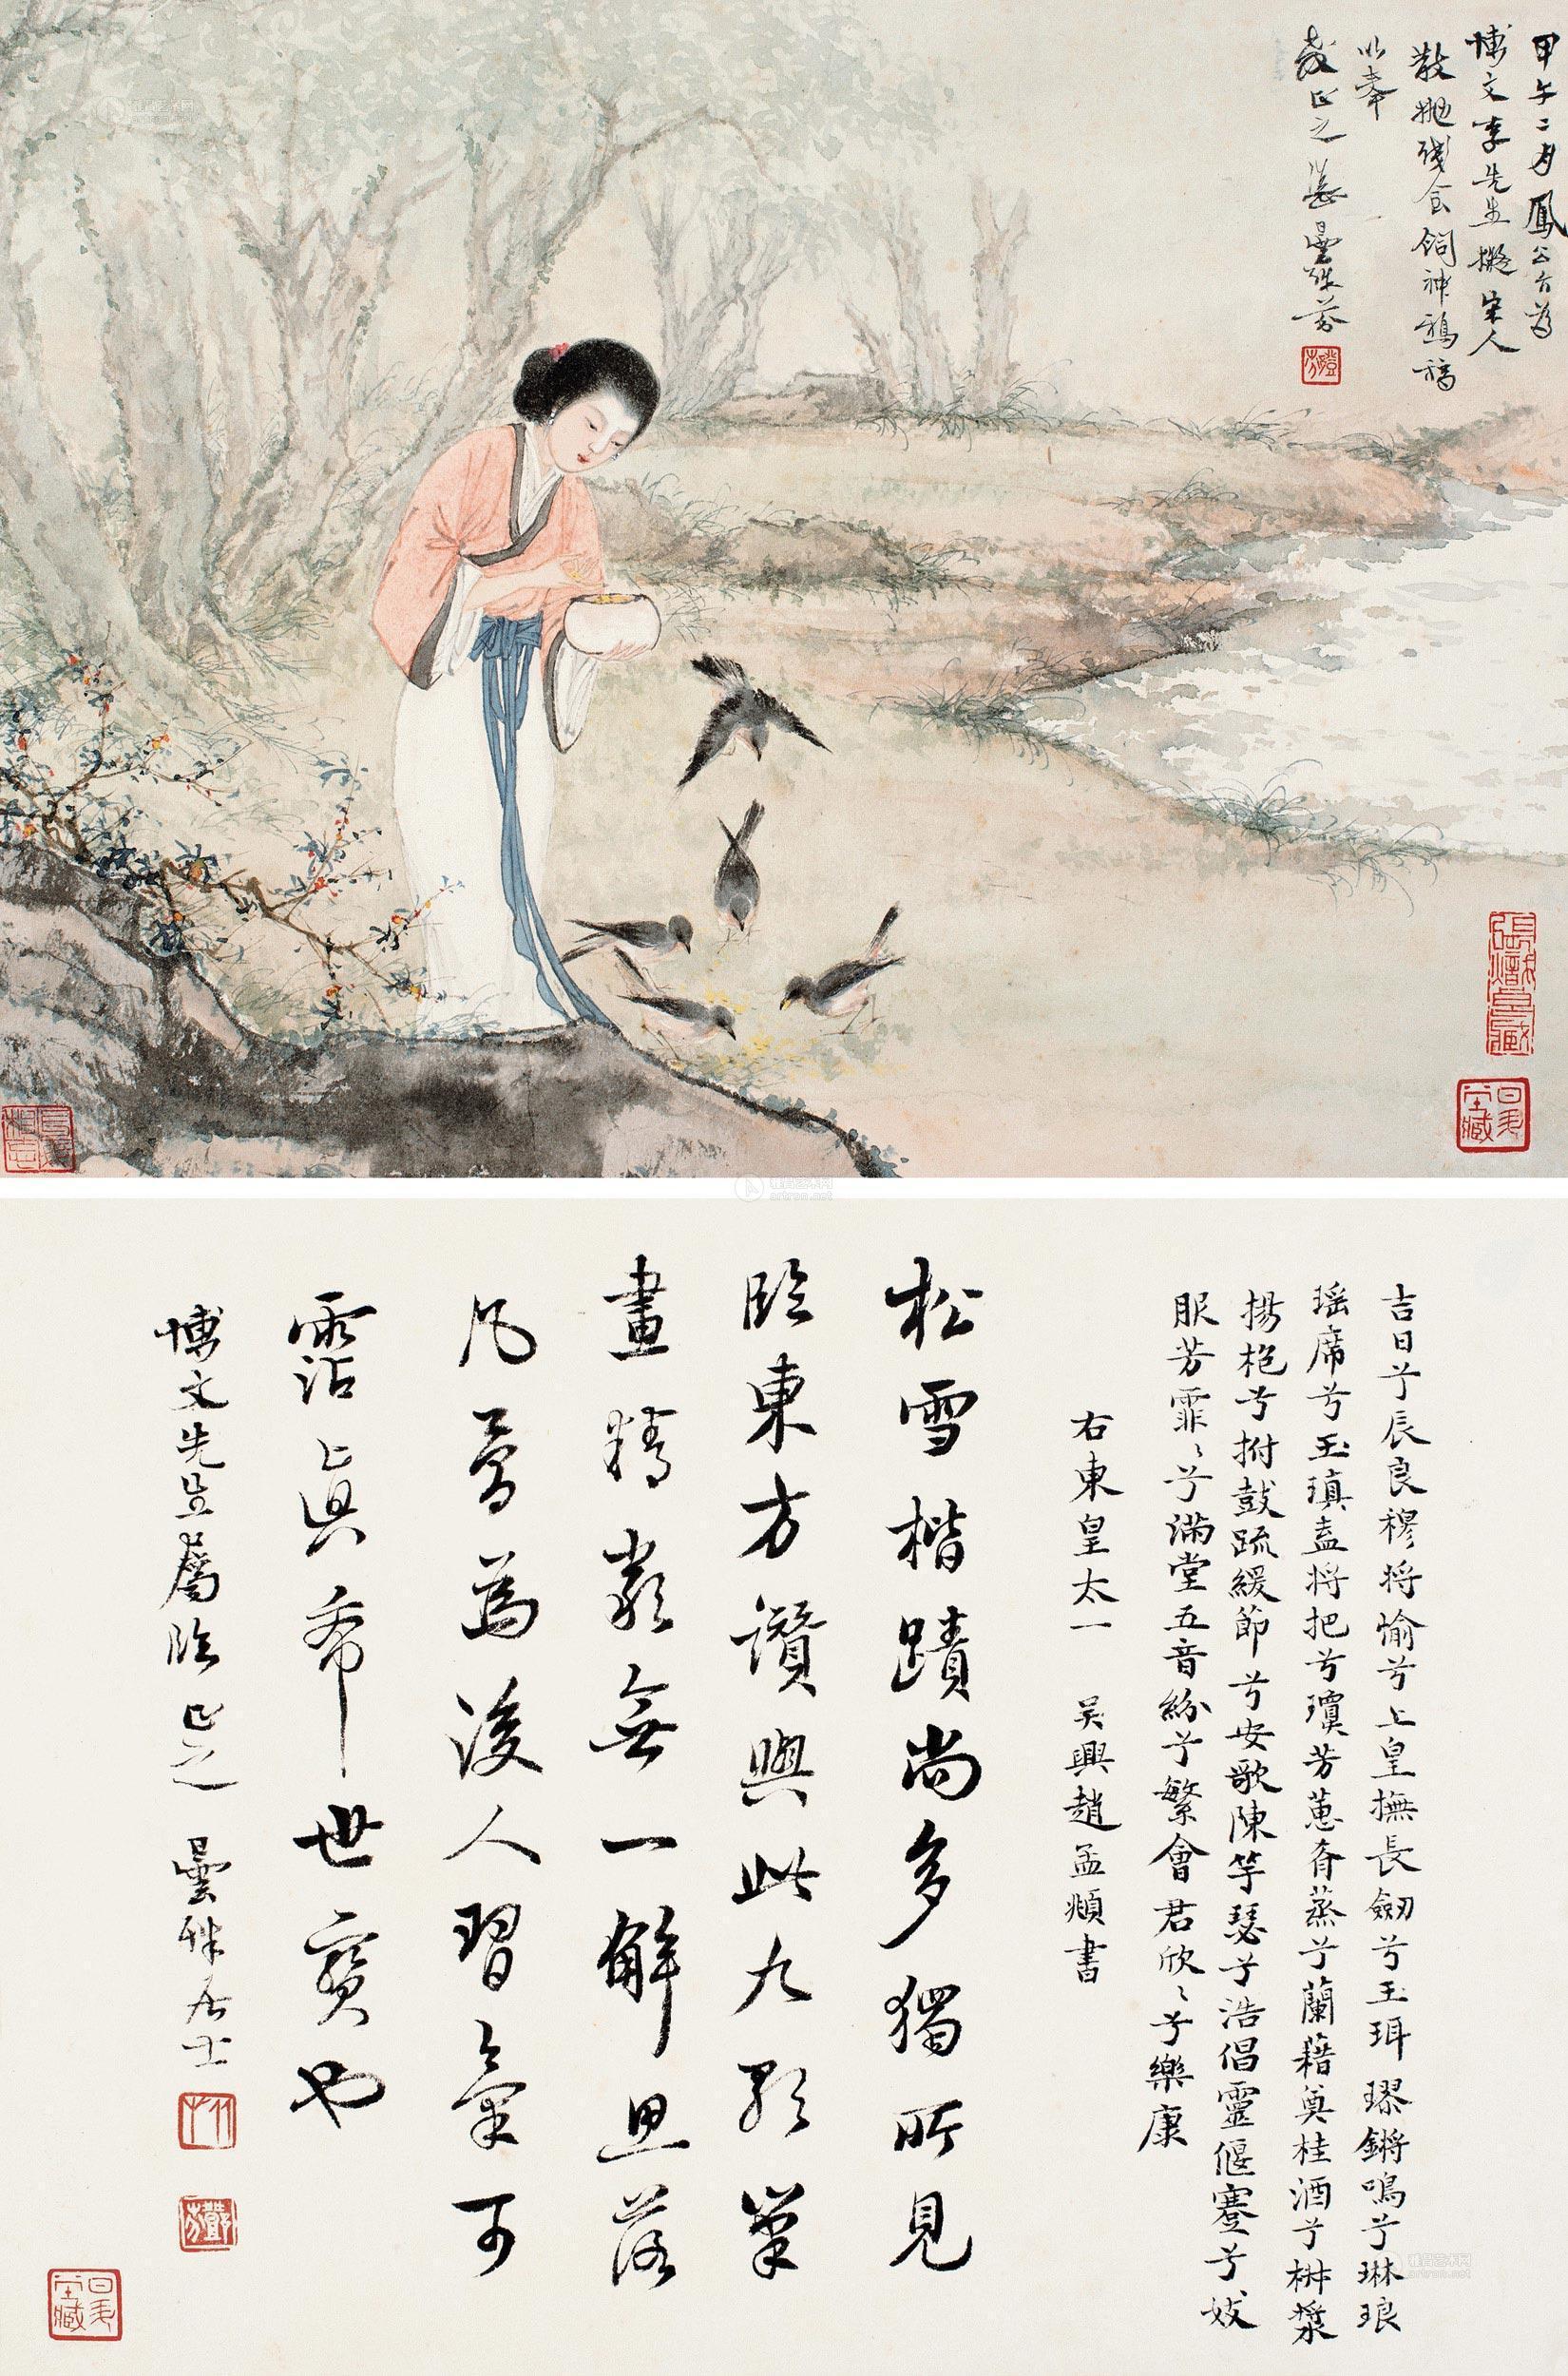 甲午二月鳳公台為
博文李先生擬宋人
散抛殘食飼神鴉稿
以奉
教正之 曇殊芬
吉日兮辰良穆將愉兮上皇撫長劒兮玉珥璆鏘鳴兮琳琅
瑶席兮玉瑱盍將把兮瓊芳蕙肴蒸兮蘭藉奠桂酒兮椒漿
揚枹兮拊鼓疏緩節兮安歌陳竽瑟兮浩倡靈偃蹇兮姣
服芳霏〻兮滿堂五音紛兮繁會君欣〻兮樂康
右東皇太一 吴興趙孟頫書
松雪楷蹟尚多獨所見
臨東方讚與此九歌筆
畫精嚴無一懈思落
凡骨為後人習氣可
霑真希世寳也
博文先生屬臨正之 曇殊居士
雅昌艺术网
artron.net